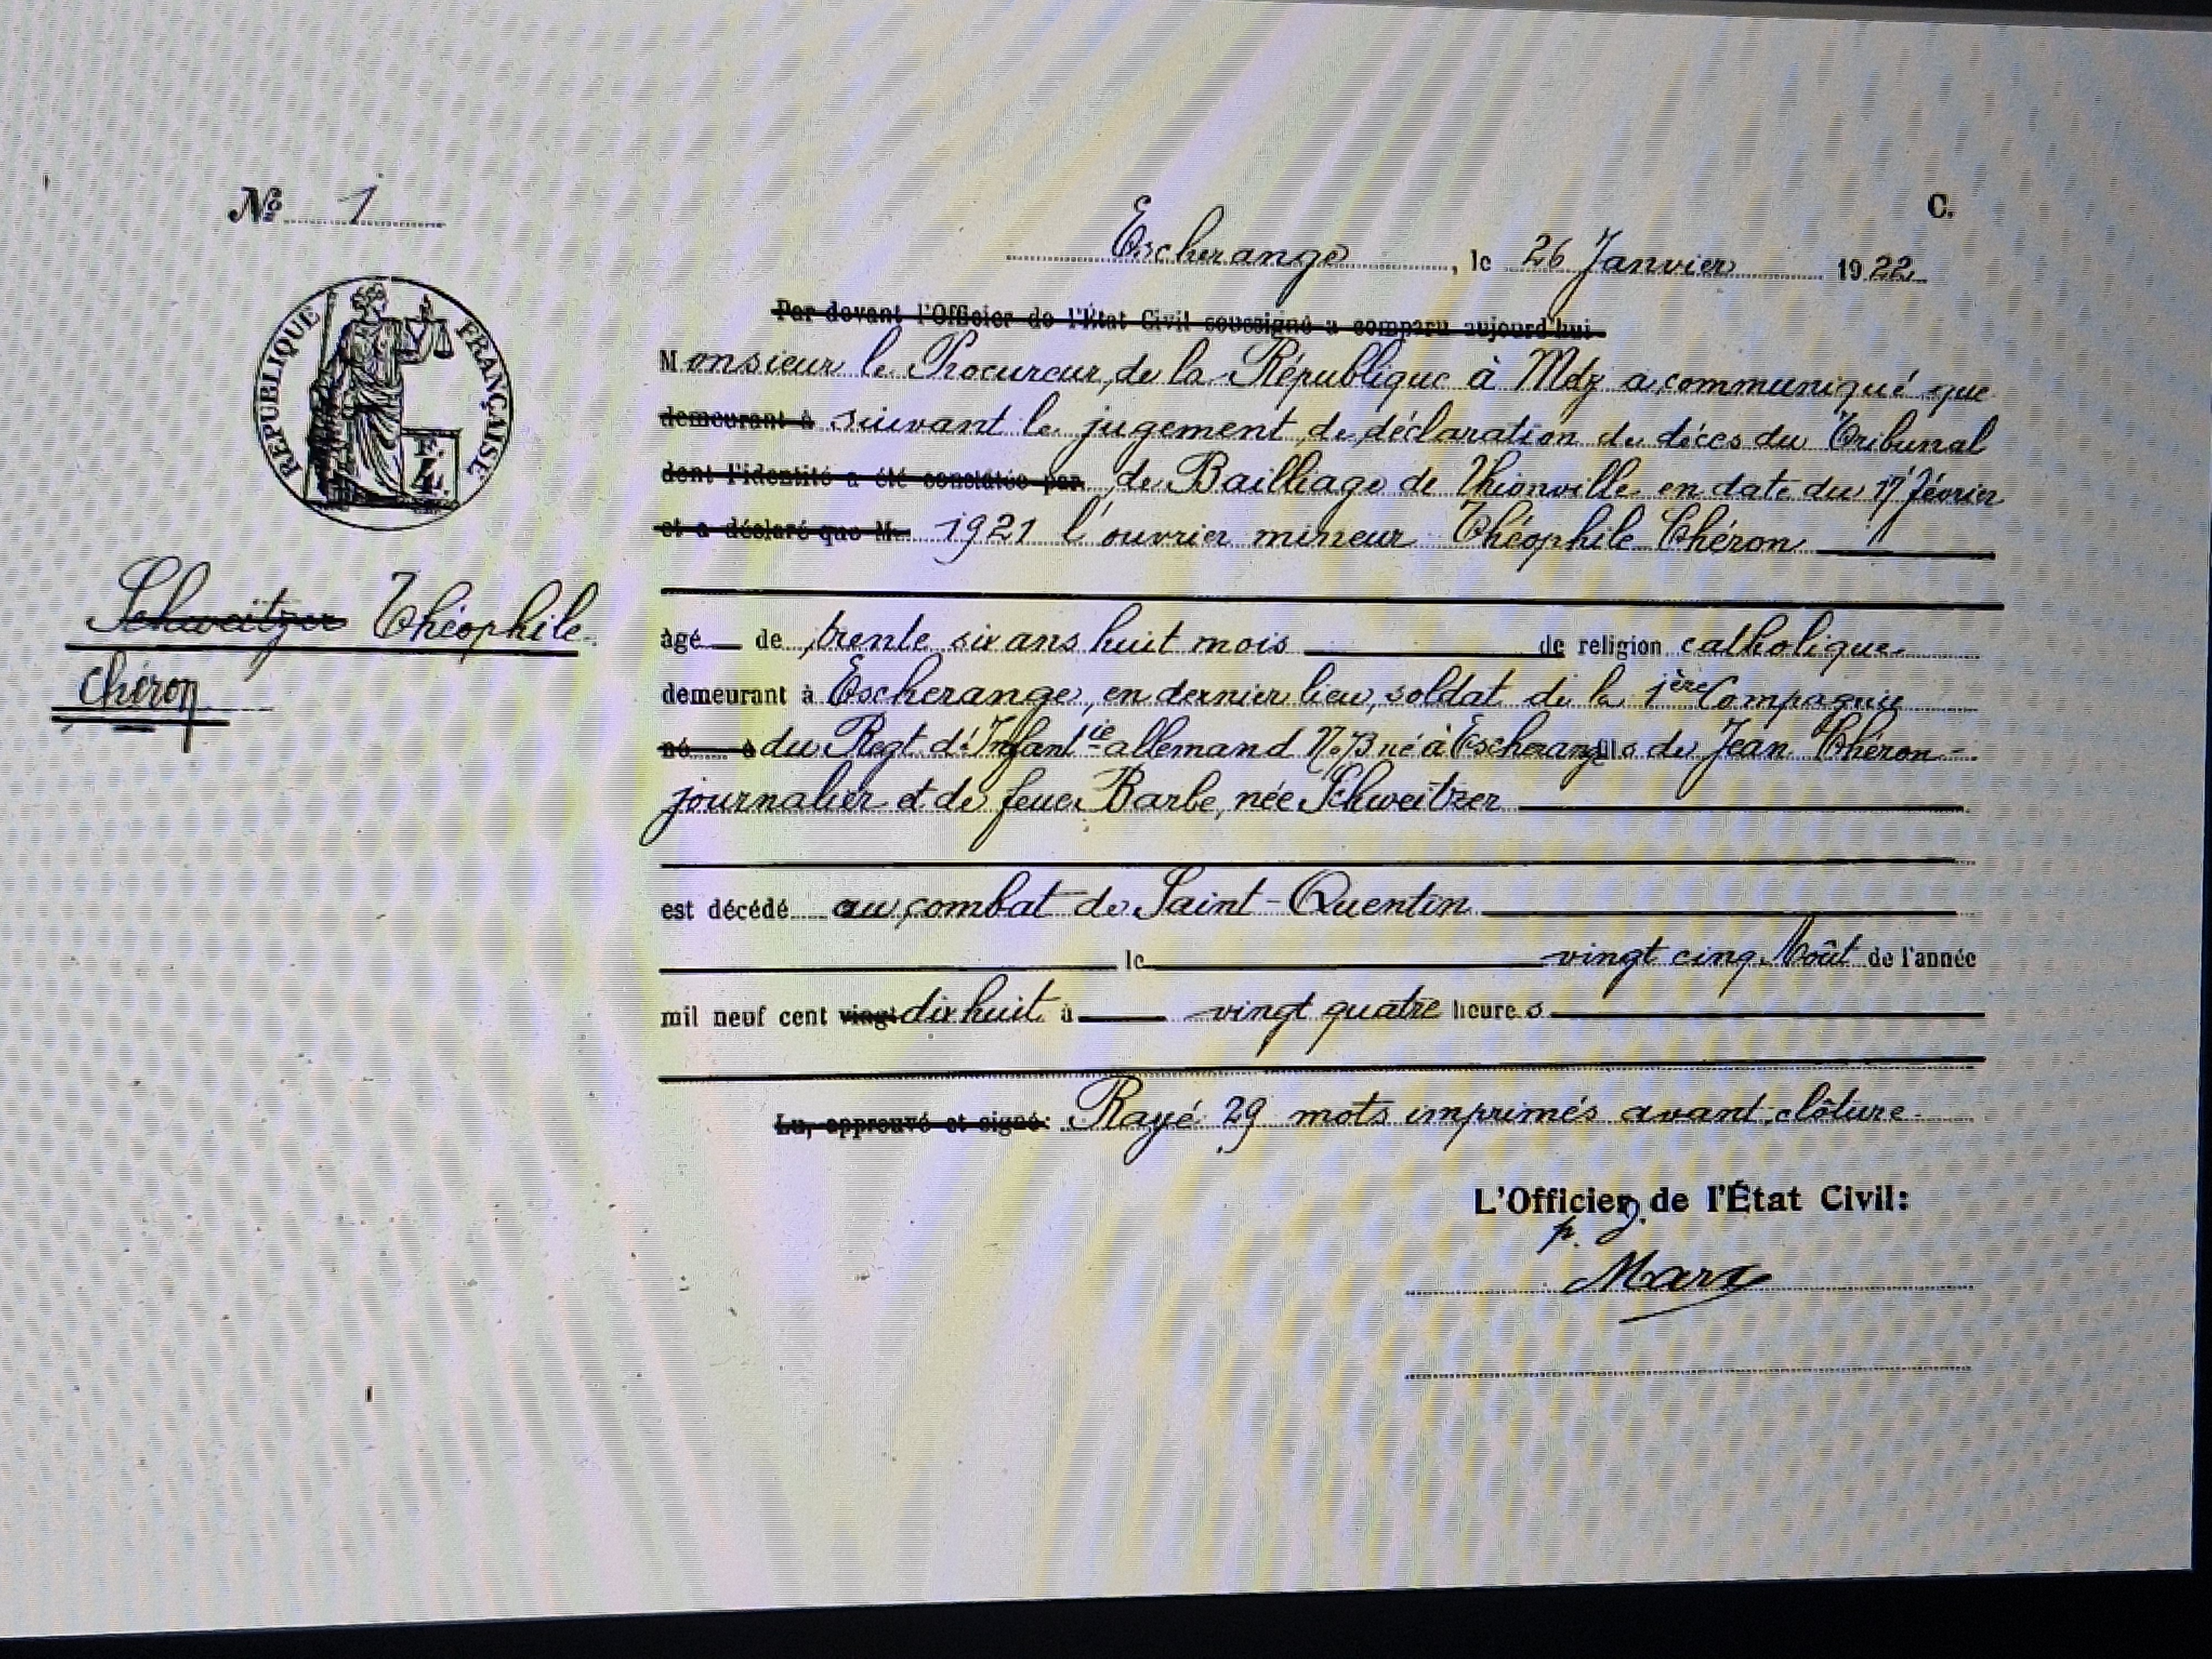 Nº 1
C.
Escherange, le 26 Janvier 1922
RÉPUBLIQUE FRANÇAISE
Par devant l'Officier de l'État Civil soussigné a comparu aujourd'hui
Monsieur le Procureur de la République à Metz a communiqué que
demeurant à suivant le jugement de déclaration de décès du Tribunal
dont l'identité a été constatée par de Bailliage de Thionville en date du 17 février
et a déclaré que M 1921 l'ouvrier mineur Théophile Chéron
Schweitzer Théophile
Chéron
âgé de trente six ans huit mois de religion catholique
demeurant à Escherange, en dernier lieu, soldat de la 1ère Compagnie
né à du Regt d'Infantie allemand No 73 né à Escherange fils de Jean Chéron
journalier et de feue Barbe, née Schweitzer
est décédé au combat de Saint-Quentin
le vingt cinq Août de l'année
mil neuf cent vingt dix huit à vingt quatre heures
Lu, approuvé et signé: Rayé 29 mots imprimés avant clôture
L'Officier de l'État Civil:
Marx